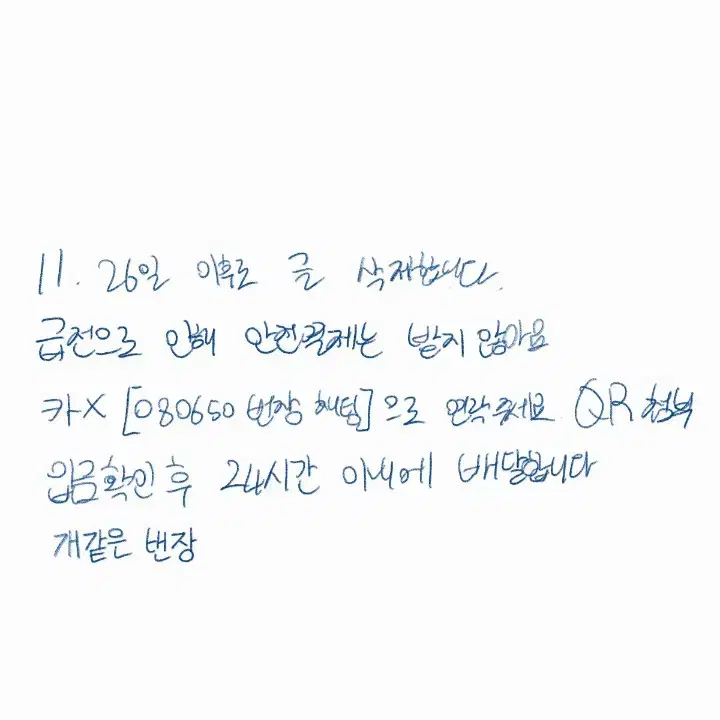 11. 26일 이후로 글 삭제합니다.
급전으로 인해 안전결제는 받지 않아요
카X [080650 번장 채팅]으로 연락주세요 QR첨부
입금확인 후 24시간 이내에 배달합니다
개같은 번장